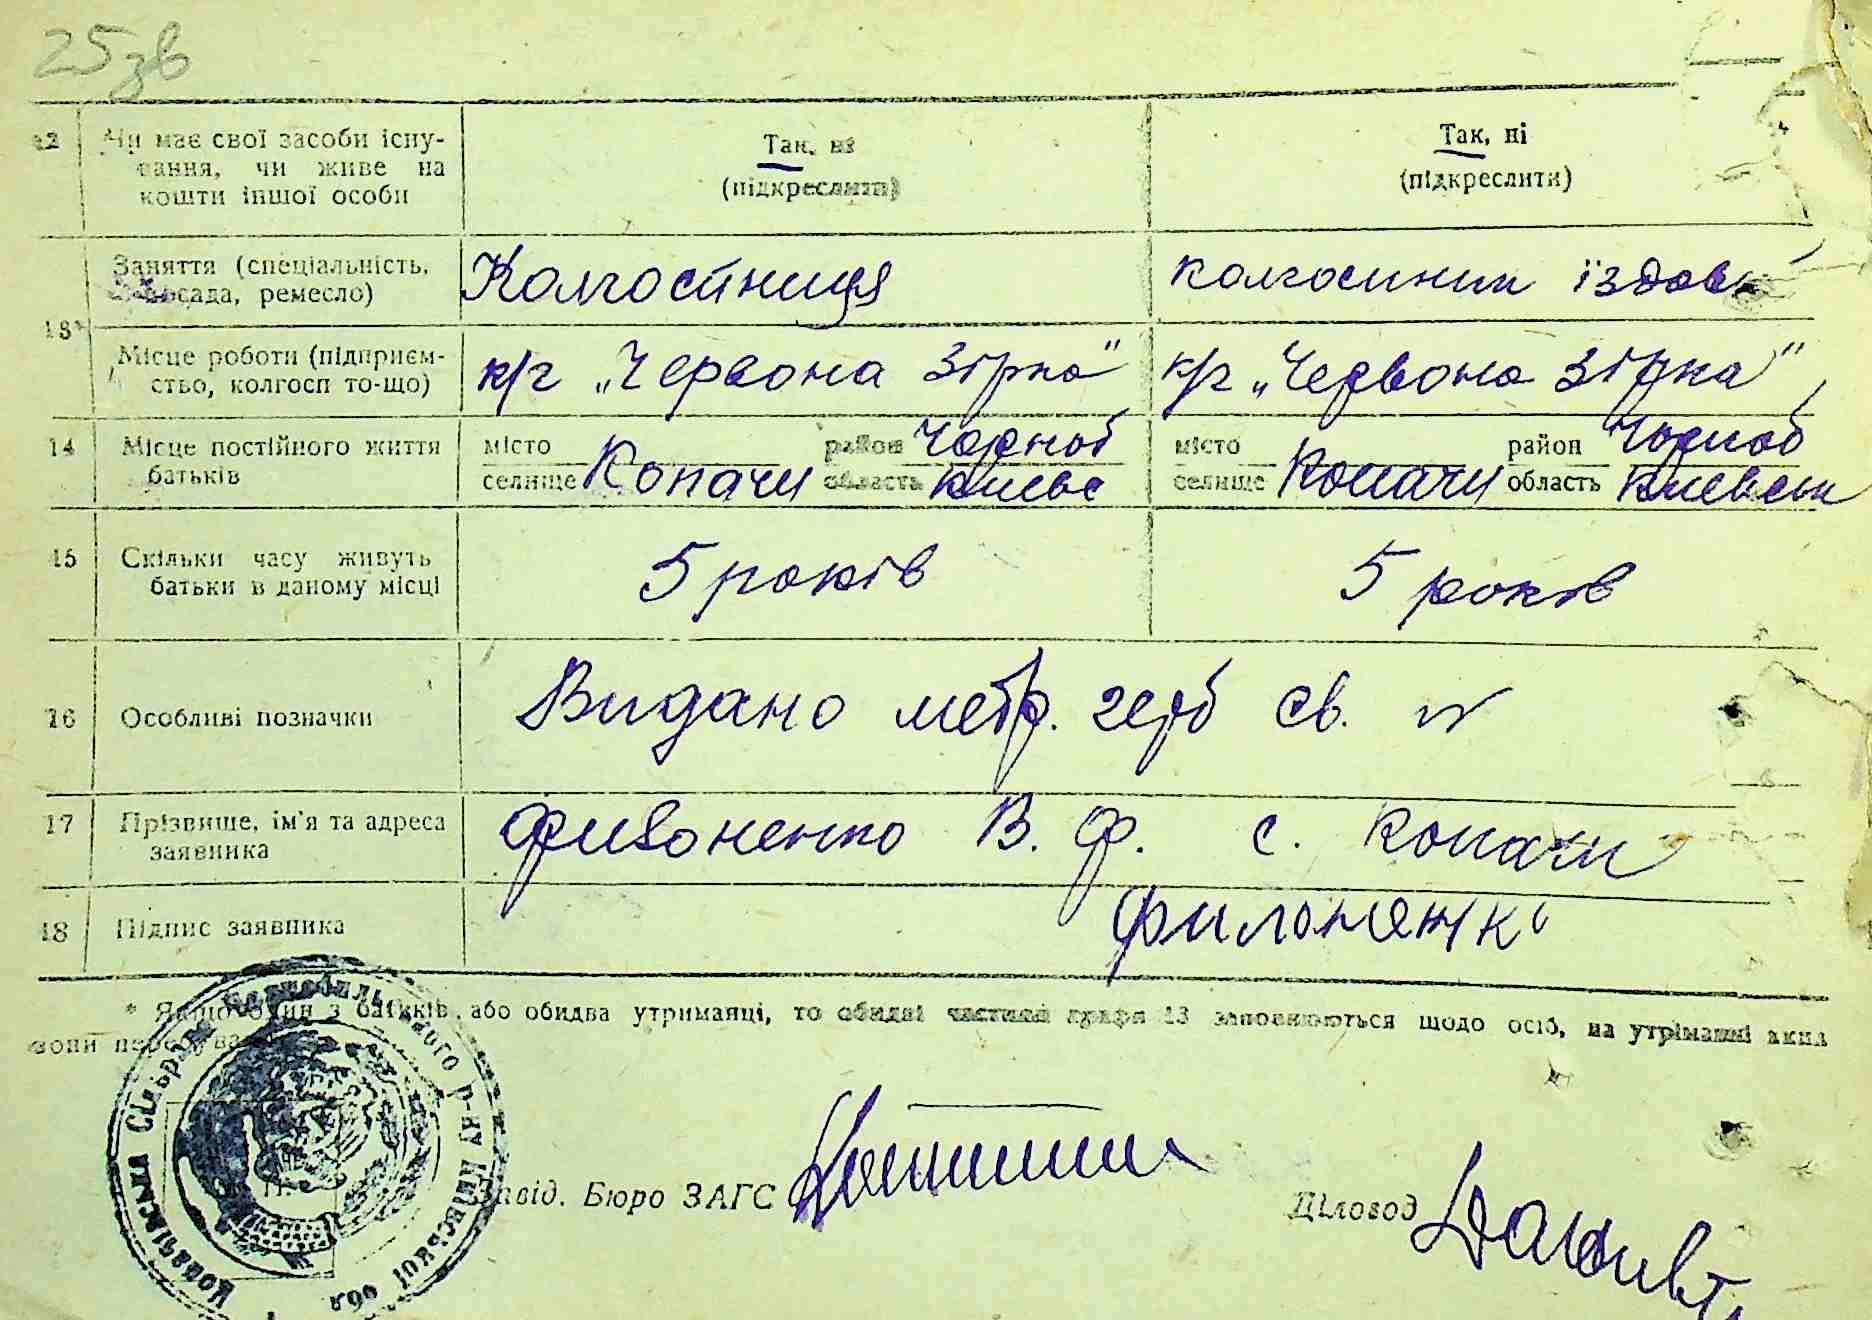 25зв
12 Чи має свої засоби існу- Так, ні Так, ні
вання, чи живе на (підкреслити) (підкреслити)
кошти іншої особи
Заняття (спеціальність, Колгоспниця колгоспник їздов
посада, ремесло)
13*
Місце роботи (підприєм- к/г „Червона Зірка" к/г „Червона Зірка",
ство, колгосп то-що)
14 Місце постійного життя місто район Чорноб місто район Чорноб
батьків селище Копачи область Києвс селище Копачи область Киевськ
15 Скільки часу живуть 5 років 5 років
батьки в даному місці
16 Особливі позначки Видано метр. герб св. №
17 Прізвище, ім'я та адреса Филоненко В. Ф. с. Копачи
заявника
18 Підпис заявника Филоненко
* Якщо один з батьків, або обидва утриманці, то обидві частини графи 13 заповнюються щодо осіб, на утриманні яких
вони перебува
Копачівська Сільрада Чорнобильського р-ну Київської обл
Завід. Бюро ЗАГС
Діловод